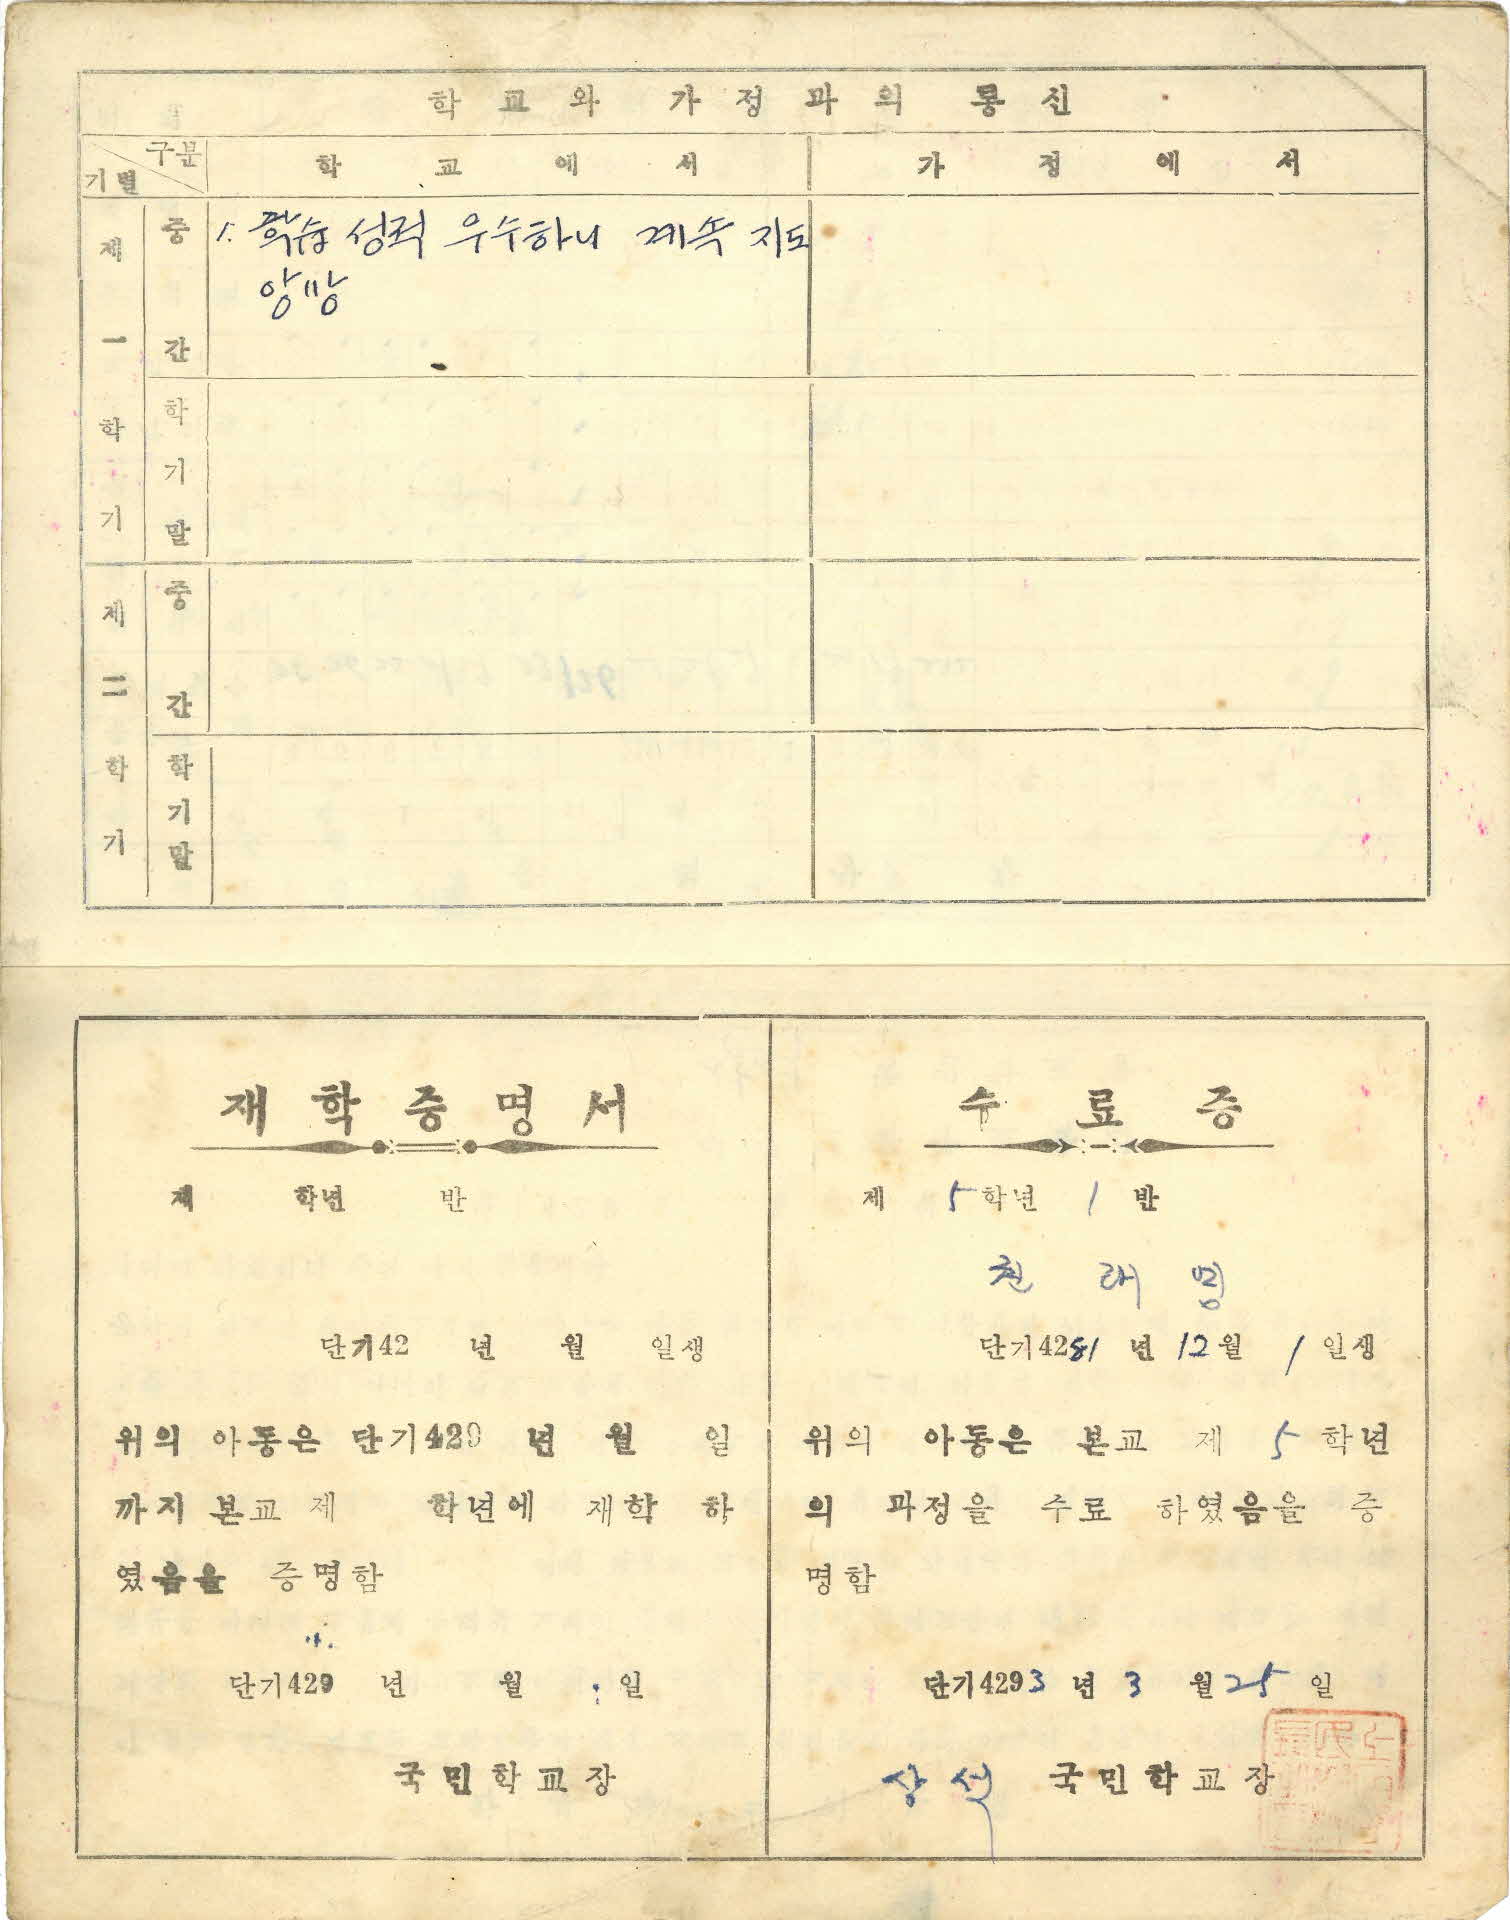 학교와 가정과의 통신
구분
기별
학교에서
가정에서
제一학기
중간
1. 학습 성적 우수하니 계속 지도
앙망
학기말
제二학기
중간
학기말
재학증명서
제 학년 반
단기42 년 월 일생
위의 아동은 단기429 년 월 일
까지 본교 제 학년에 재학 하
였음을 증명함
단기429 년 월 일
국민학교장
수료증
제 5학년 1반
래명
단기4281년 12월 1일생
위의 아동은 본교 제 5학년
의 과정을 수료 하였음을 증
명함
단기4293년 3월 25일
상석 국민학교장